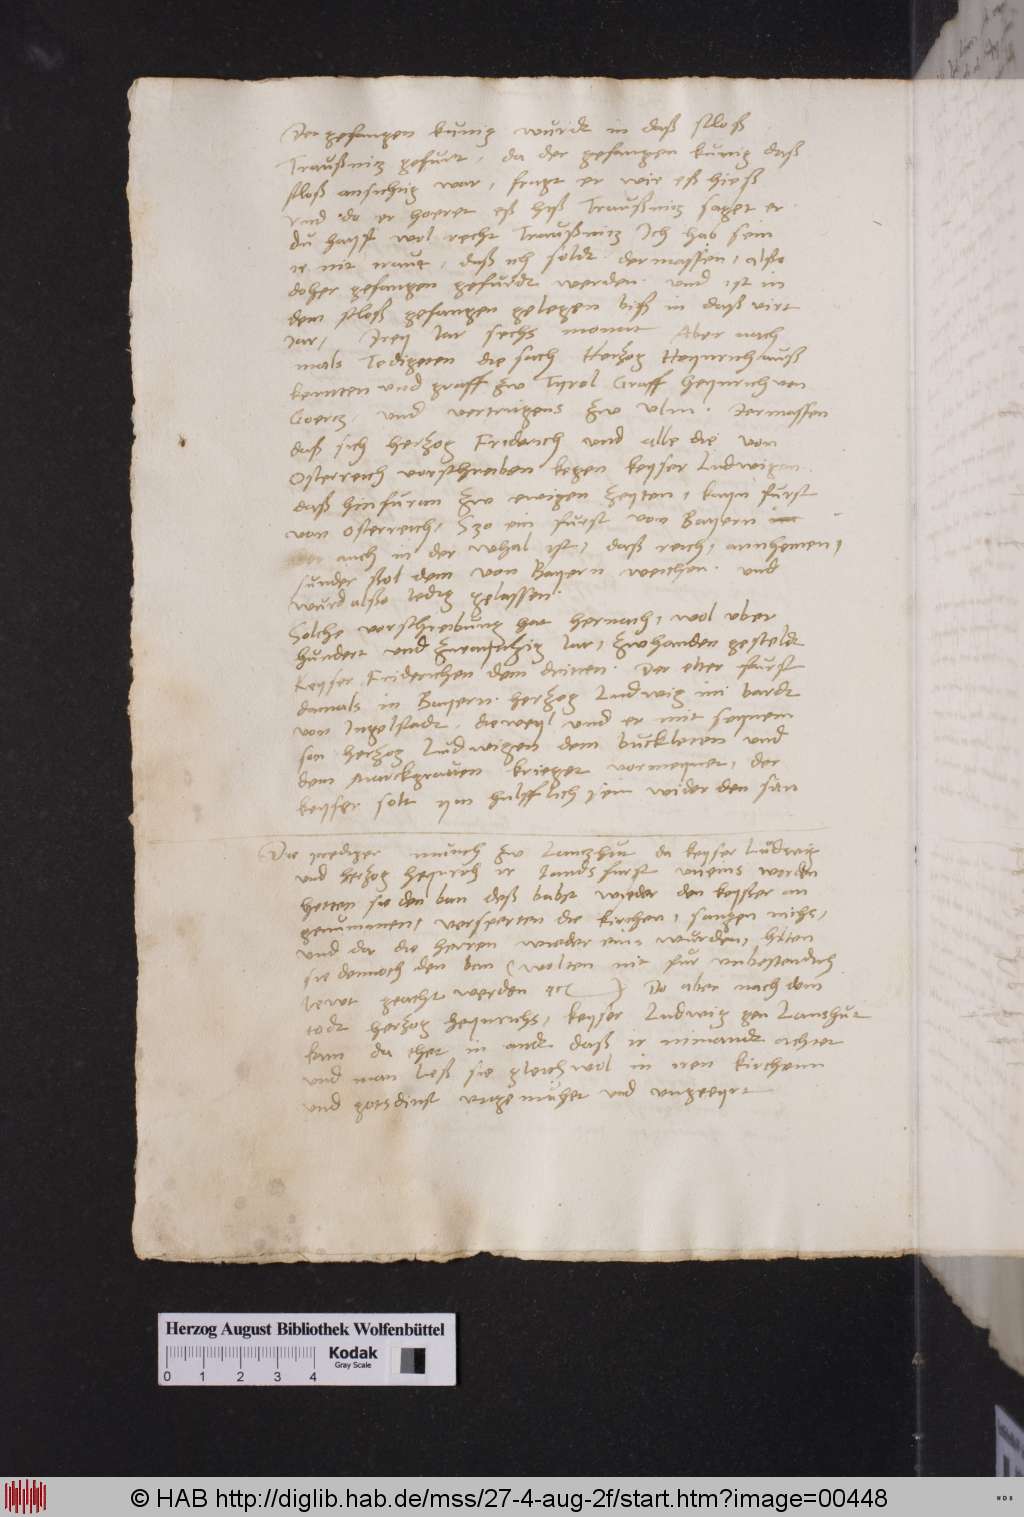 Der gefangen kunig wurdt in daß sloß
Traußnitz gefurt, da der gefangen kunig daß
sloß ansichtig war, fragt er wie eß hieß
vnd do er hoeret eß hiß Traußnitz saget er
du haist wol recht Traußnitz Ich hab sein
ie nit traut, daß ich soldt dermassen, alßo
doher gefangen gefurdt werden. vnd ist in
dem sloß gefangen gelegen biß in daß virt
Jar, Drey Jar sechs monat Aber nach
mals Tedigeten die sach Hertzog Heynrich auß
kernten vnd graff zw Tyrol Graff Heynrich von
Goertz, vnd vertrugens zw vlm. Dermassen
daß sich hertzog Friderich vnd alle die von
Osterreich vorschreiben kegen keyser Ludwigen
daß hinfuran zw ewigen zeyten, kayn furst
von Osterreich, Szo ein furst von Bayern
auch in der whal ist, daß reich, annhemen,
sunder ßol dem von Bayern weichen. vnd
wurd alßo ledig gelassen.
Solche vorschreibung hat hernach, wol vber
hundert vnd zwaintzig Jar, zwhanden gesteldt
Keyser Friderichen dem dritten. Der elter furst
damals in Bayern. hertzog Ludwig im bardt
von Ingelstadt, dieweyl vnd er mit seynem
son hertzog Ludwigen dem buckleten vnd
dem Marckgrauen krieget vormeynet, der
keyser solt ym hulfflich sein wider den san
Die prediger munch zw Lantzhut da keyser Ludwig
vnd hertzog Heynrich ir landsfurst vneins worden
hetten sie den ban deß babst wieder den keyßer an
genummen, versperten die kirchen, sangen nichs,
vnd do die herren wieder eins wurden, hilten
sie dennoch den ban (wolten nit für vnbestendich
lewt geacht werden etc) Do aber nach dem
todt hertzog Heynrichs, keyser Ludwig gen Lanshut
kam da thet in andt daß ir nimandt achtet
vnd man ließ sie gleichwol in iren kirchenn
vnd gotsdinst vngemuhet vnd vngeeyrt
Herzog August Bibliothek Wolfenbüttel
Kodak
Gray Scale
0 1 2 3 4
© HAB http://diglib.hab.de/mss/27-4-aug-2f/start.htm?image=00448